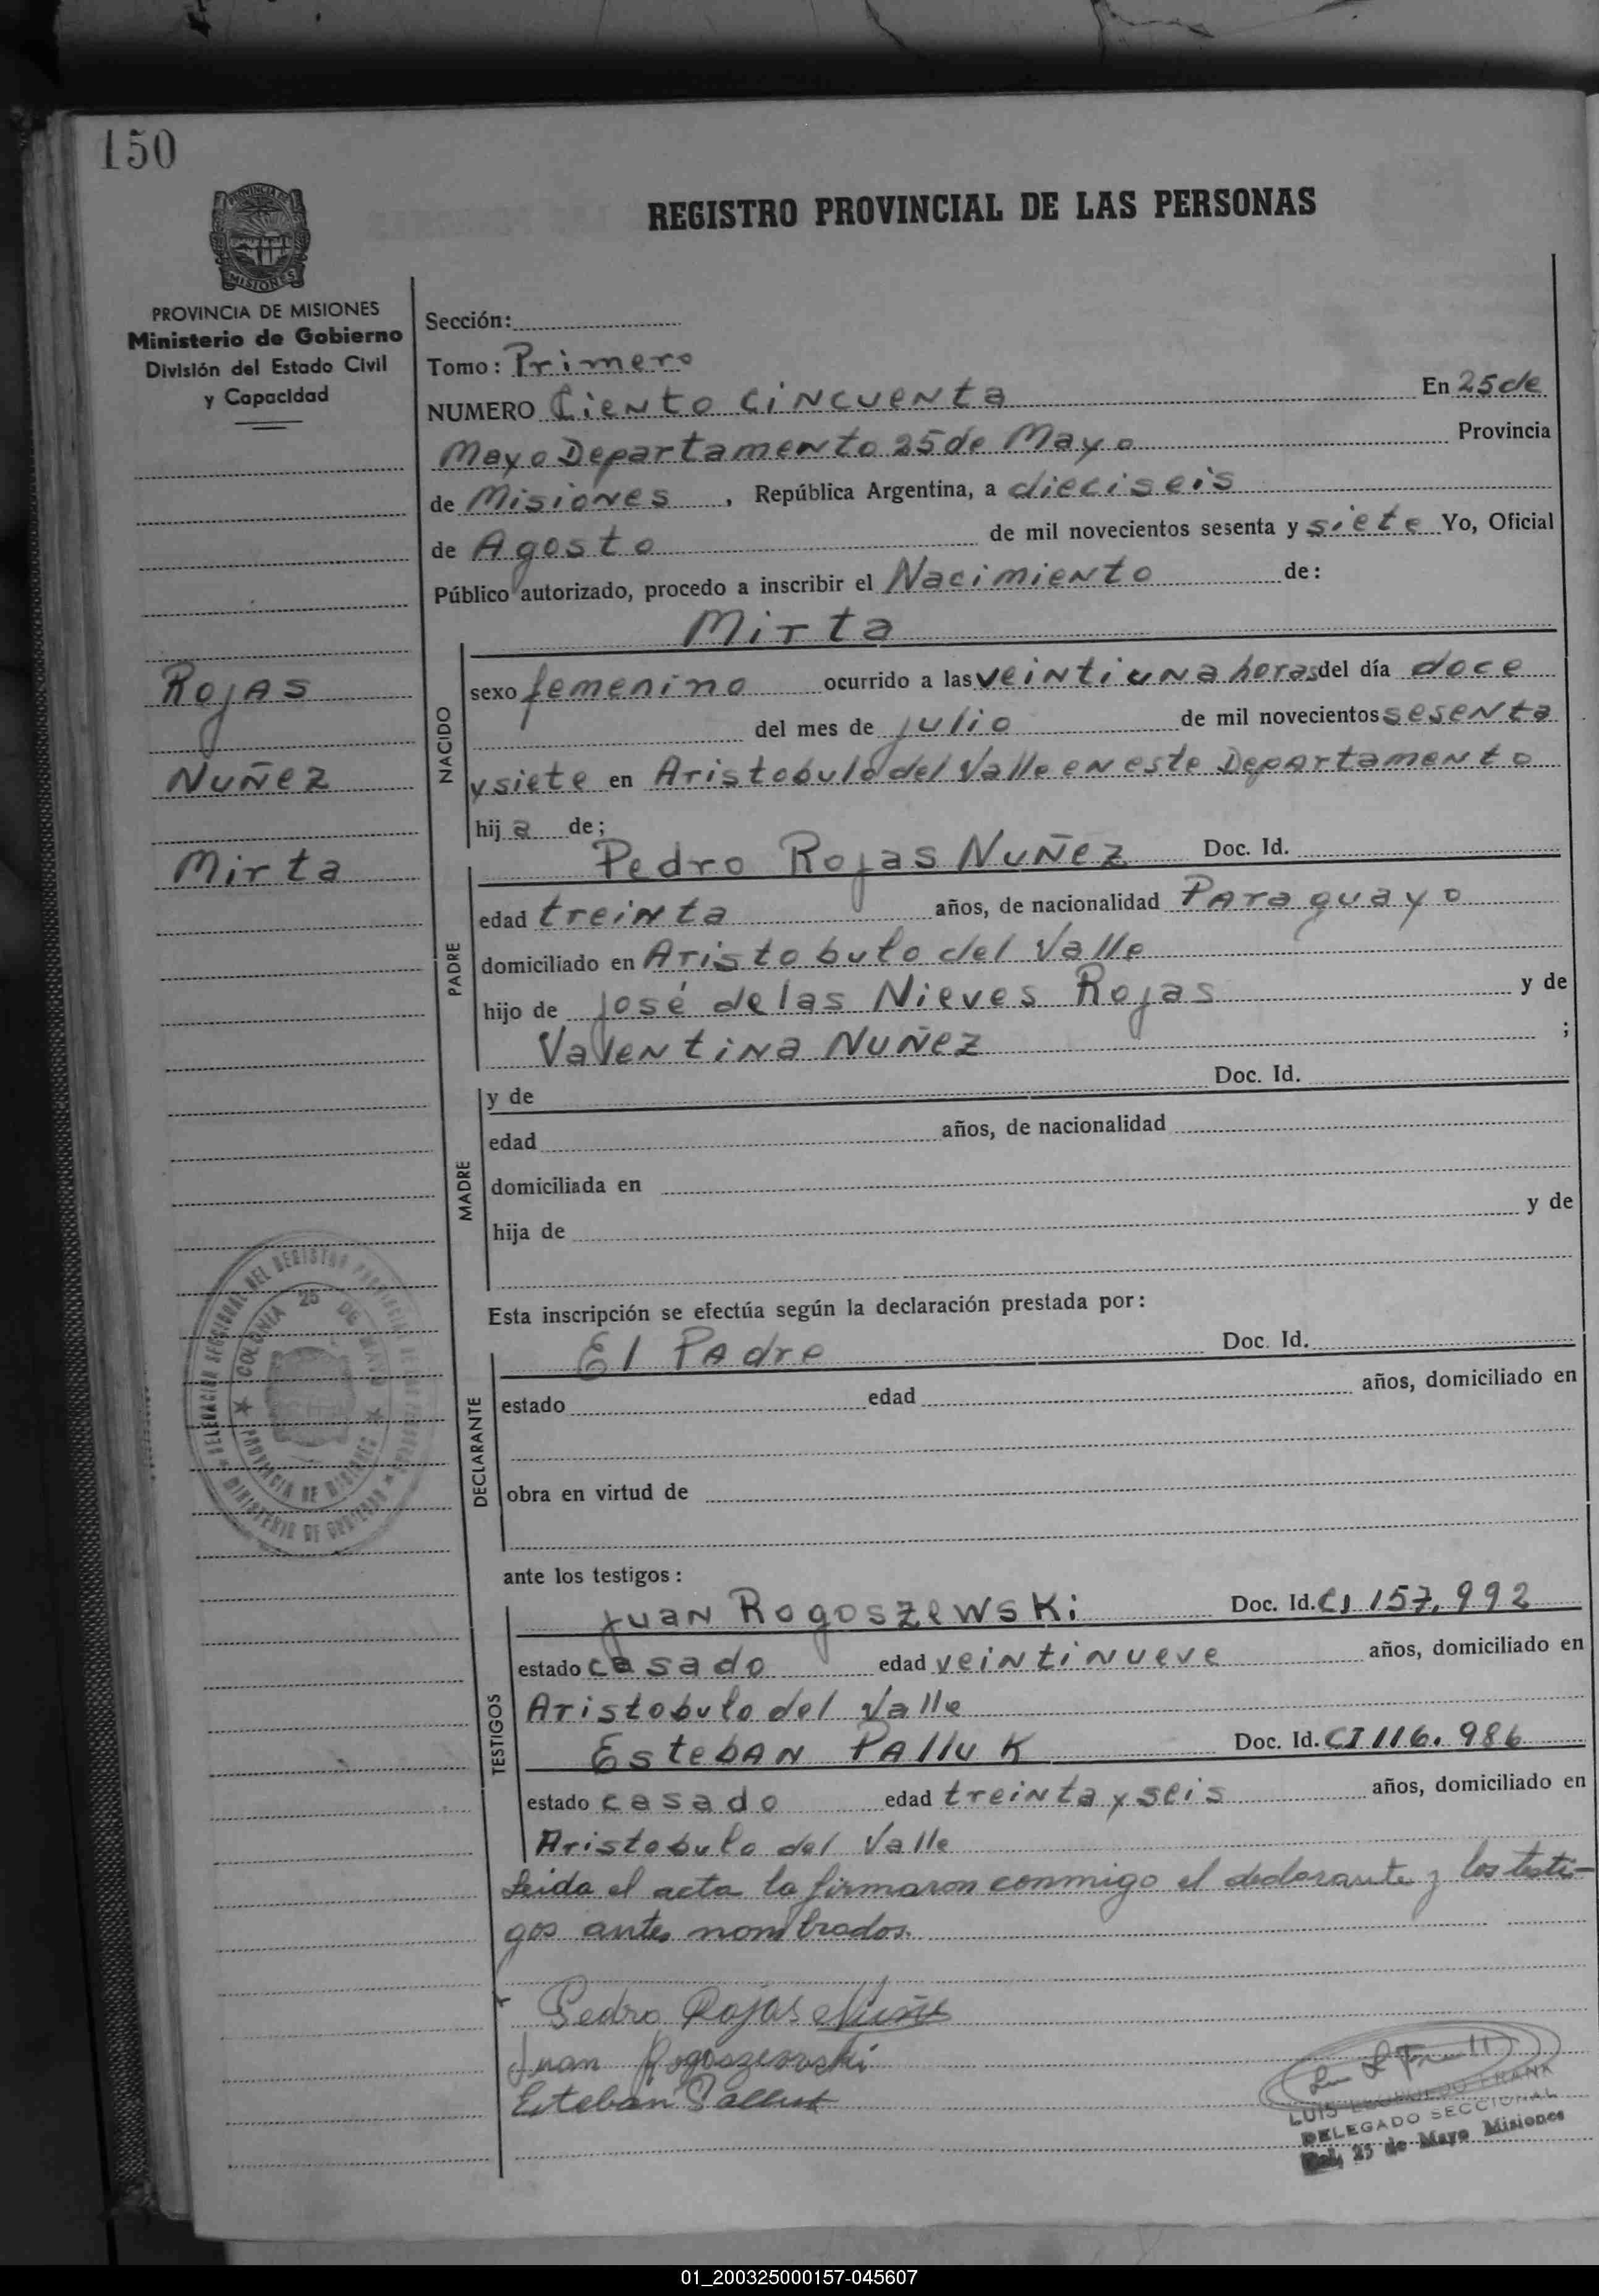 150
REGISTRO PROVINCIAL DE LAS PERSONAS
PROVINCIA DE MISIONES
MISIONES
PROVINCIA DE MISIONES
Ministerio de Gobierno
División del Estado Civil
y Capacidad
Rojas
Nuñez
Mirta
Sección:
Tomo: Primero
NUMERO Ciento cincuenta En 25 de
Mayo Departamento 25 de Mayo Provincia
de Misiones, República Argentina, a dieciseis
de Agosto de mil novecientos sesenta y siete Yo, Oficial
Público autorizado, procedo a inscribir el Nacimiento de:
Mirta
NACIDO
sexo femenino ocurrido a las veintiuna horas del día doce
del mes de julio de mil novecientos sesenta
y siete en Aristobulo del Valle en este Departamento
hija de;
PADRE
Pedro Rojas Nuñez Doc. Id.
edad treinta años, de nacionalidad Paraguayo
domiciliado en Aristobulo del Valle
hijo de José de las Nieves Rojas y de
Valentina Nuñez ;
MADRE
y de Doc. Id.
edad años, de nacionalidad
domiciliada en
hija de y de
Esta inscripción se efectúa según la declaración prestada por:
DECLARANTE
El Padre Doc. Id.
estado edad años, domiciliado en
obra en virtud de
DELEGACION SECCIONAL DEL REGISTRO PROVINCIAL DE LAS PERSONAS
MINISTERIO DE GOBIERNO
COLONIA 25 DE MAYO
PROVINCIA DE MISIONES
ante los testigos:
TESTIGOS
Juan Rogoszewski Doc. Id. CI 157.992
estado casado edad veintinueve años, domiciliado en
Aristobulo del Valle
Esteban Palluk Doc. Id. CI 116.986
estado casado edad treinta y seis años, domiciliado en
Aristobulo del Valle
Leida el acta la firmaron conmigo el declarante y los testi-
gos antes nombrados.
Pedro Rojas Nuñez
Juan Rogoszewski
Esteban Palluk
LUIS LEOPOLDO FRANK
DELEGADO SECCIONAL
Col. 25 de Mayo Misiones
01_200325000157-045607